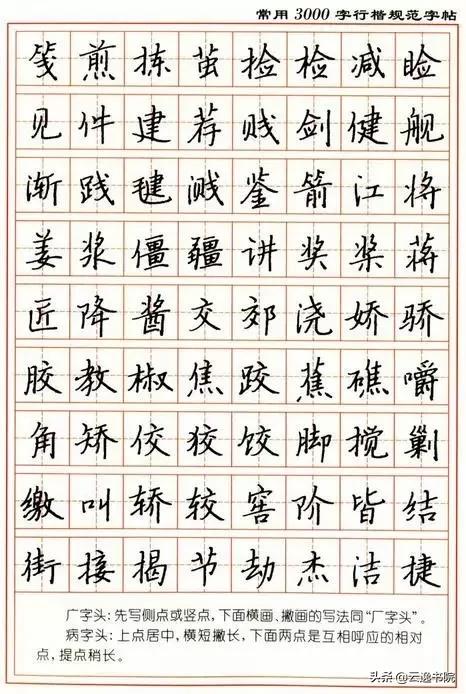 常用3000字行楷规范字帖
笺煎拣茧捡检减睑
见件建荐贱剑健舰
渐践毽溅鉴箭江将
姜浆僵疆讲奖桨蒋
匠降酱交郊浇娇骄
胶教椒焦跤蕉礁嚼
角矫佼狡饺脚搅剿
缴叫轿较窖阶皆结
街接揭节劫杰洁捷
广字头:先写侧点或竖点,下面横画、撇画的写法同“厂字头”。
病字头:上点居中,横短撇长,下面两点是互相呼应的相对
点,提点稍长。
头条@云逸书院